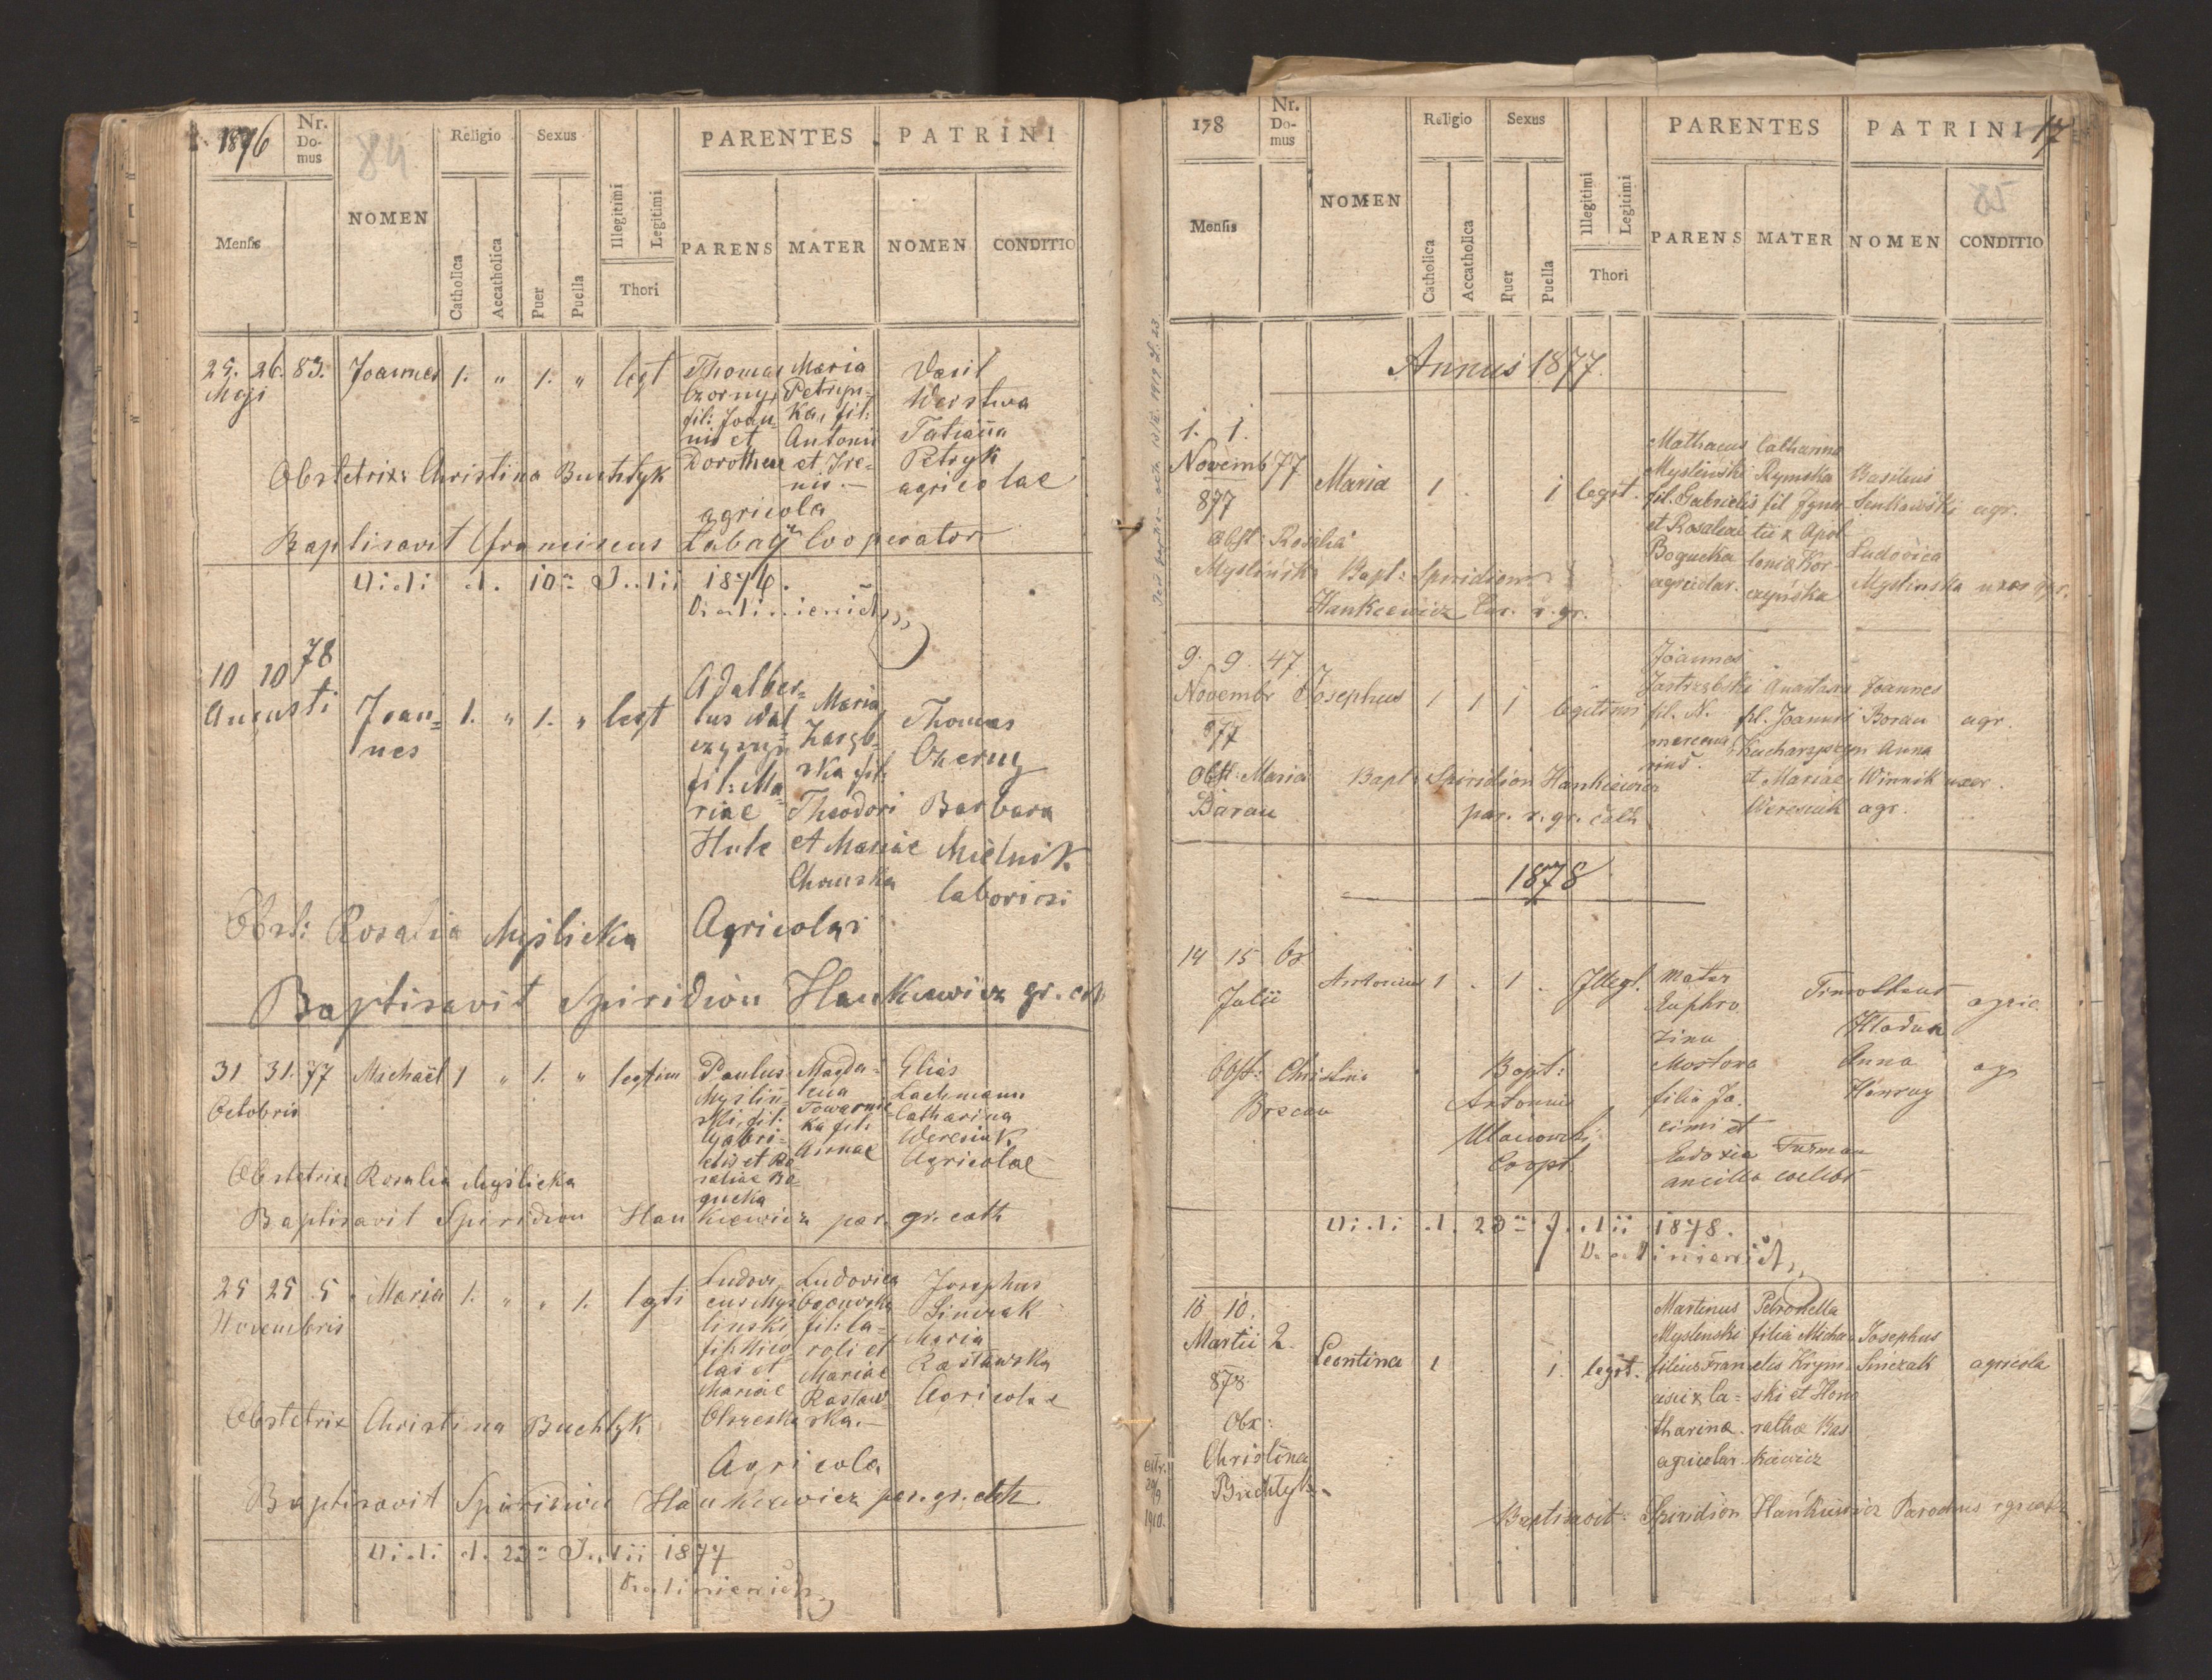 1876
Nr. Domus
84
NOMEN
Religio
Sexus
PARENTES
PATRINI
Mensis
Catholica
Accatholica
Puer
Puella
Illegitimi
Legitimi
Thori
PARENS
MATER
NOMEN
CONDITIO
25. 26. 83. Joannes 1. " 1. " legt
Maji
Thomas
Czorny,
fil: Joan-
nis et
Dorotheae
agricola
Maria
Petryn-
ka, fil:
Antonii
et Ire-
nis.
Vasil
Werstwa
Tatianna
Petryk
agricolae
Obstetrix Christina Buchtyk
Baptisavit Franciscus Labay Cooperator
Vidi d. 10 Julii 1876.
10 10 78
Augusti
Joan-
nes
1. " 1. " legt
Adalber-
tus
fil: Ma-
riae
Hule
Maria
Zaręb-
ska fil.
Theodori
et Mariae
Chomska
Thomas
Czerny
Barbara
Mielnik
laboriosi
Obst: Rosalia Myślicka
Agricolar
Baptisavit Spiridion Hankiewicz gr. cth
31 31. 77 Michaël 1 " 1. " legtim
Octobris
Paulus
Myślin-
ski, fil:
Gabri-
elis et Ro-
saliae Bo-
gucka
Magda-
lena
Towarnic-
ka fil:
Annae
Elias
Lachmann
Catharina
Weresiuk
Agricolae
Obstetrix Rosalia Myślicka
Baptisavit Spiridion Hankiewicz par. gr. cath
25 25 5 Maria 1. " " 1. lgti
Novembris
Ludovi-
cus Myś-
linski
fil: Nico-
lai et
Mariae
Olszeska
Ludovica
fil: Ca-
roli et
Mariae
Rastaw-
ska.
Josephus
Sinczak
Maria
Rastawska
Agricolae
Obstetrix Christina Buchtyk
Agricola
Baptisavit Spiridion Hankiewicz par. gr. cth
Vidi d. 23 Julii 1877
178
17
Nr. Domus
NOMEN
Religio
Sexus
PARENTES
PATRINI
Mensis
Catholica
Accatholica
Puer
Puella
Illegitimi
Legitimi
Thori
PARENS
MATER
NOMEN
CONDITIO
Annus 1877.
1. 1.
Novemb 77 Maria 1 1 legit.
877
Mathaeus
Myslinski
fil. Gabrielis
et Rosaliae
Bogucka
agricolar.
Catharina
Rymska
fil Igna-
tii & Apol-
lonia Kor-
czyńska
Basilius
Senkowski agr.
Ludovica
Myslinska uxor agr.
Obst: Rosalia
Myslińsk Bapt: Spiridion
Hankiewicz Par. r. gr.
9. 9. 47
Novembr Josephus 1 1 1 legitimi
877
Joannes
Jastrzębski
fil. N.
mercena-
rius.
Anastasia
fil. Joannis
Kucharzyszyn
et Mariae
Weresiuk
Joannes
Boran agr.
Anna
Winnik uxor.
agr.
Obst: Maria Bapt: Spiridion Hankiewicz
Baran par. r. gr. cath
1878
14 15
Julii
Antonius 1 . 1 . Illegt.
Mater
Euphro-
zina
Mostova
filia Ja-
cimi et
Eudoxia Furman
ancilla coelebs
Timotheus
agric.
Anna
Hanruy
agr
Obst: Christina
Bapt:
Antonius
Ulanowski
Coopt
Vidi d. 23 Julii 1878.
10 10.
Martii 2 Leontina 1 1. legit.
878
Martinus
Myslenski
filius Fran-
cisci & Ca-
tharinae
agricolar.
Petronella
filia Micha-
elis Krym-
ski et Hono-
rathae Bas-
kiewicz
Josephus
Sinczak agricola
Obx:
Christina
Buchtyk.
Baptisavit: Spiridion Hankiewicz Parochus r gr cath
extr.
1910.